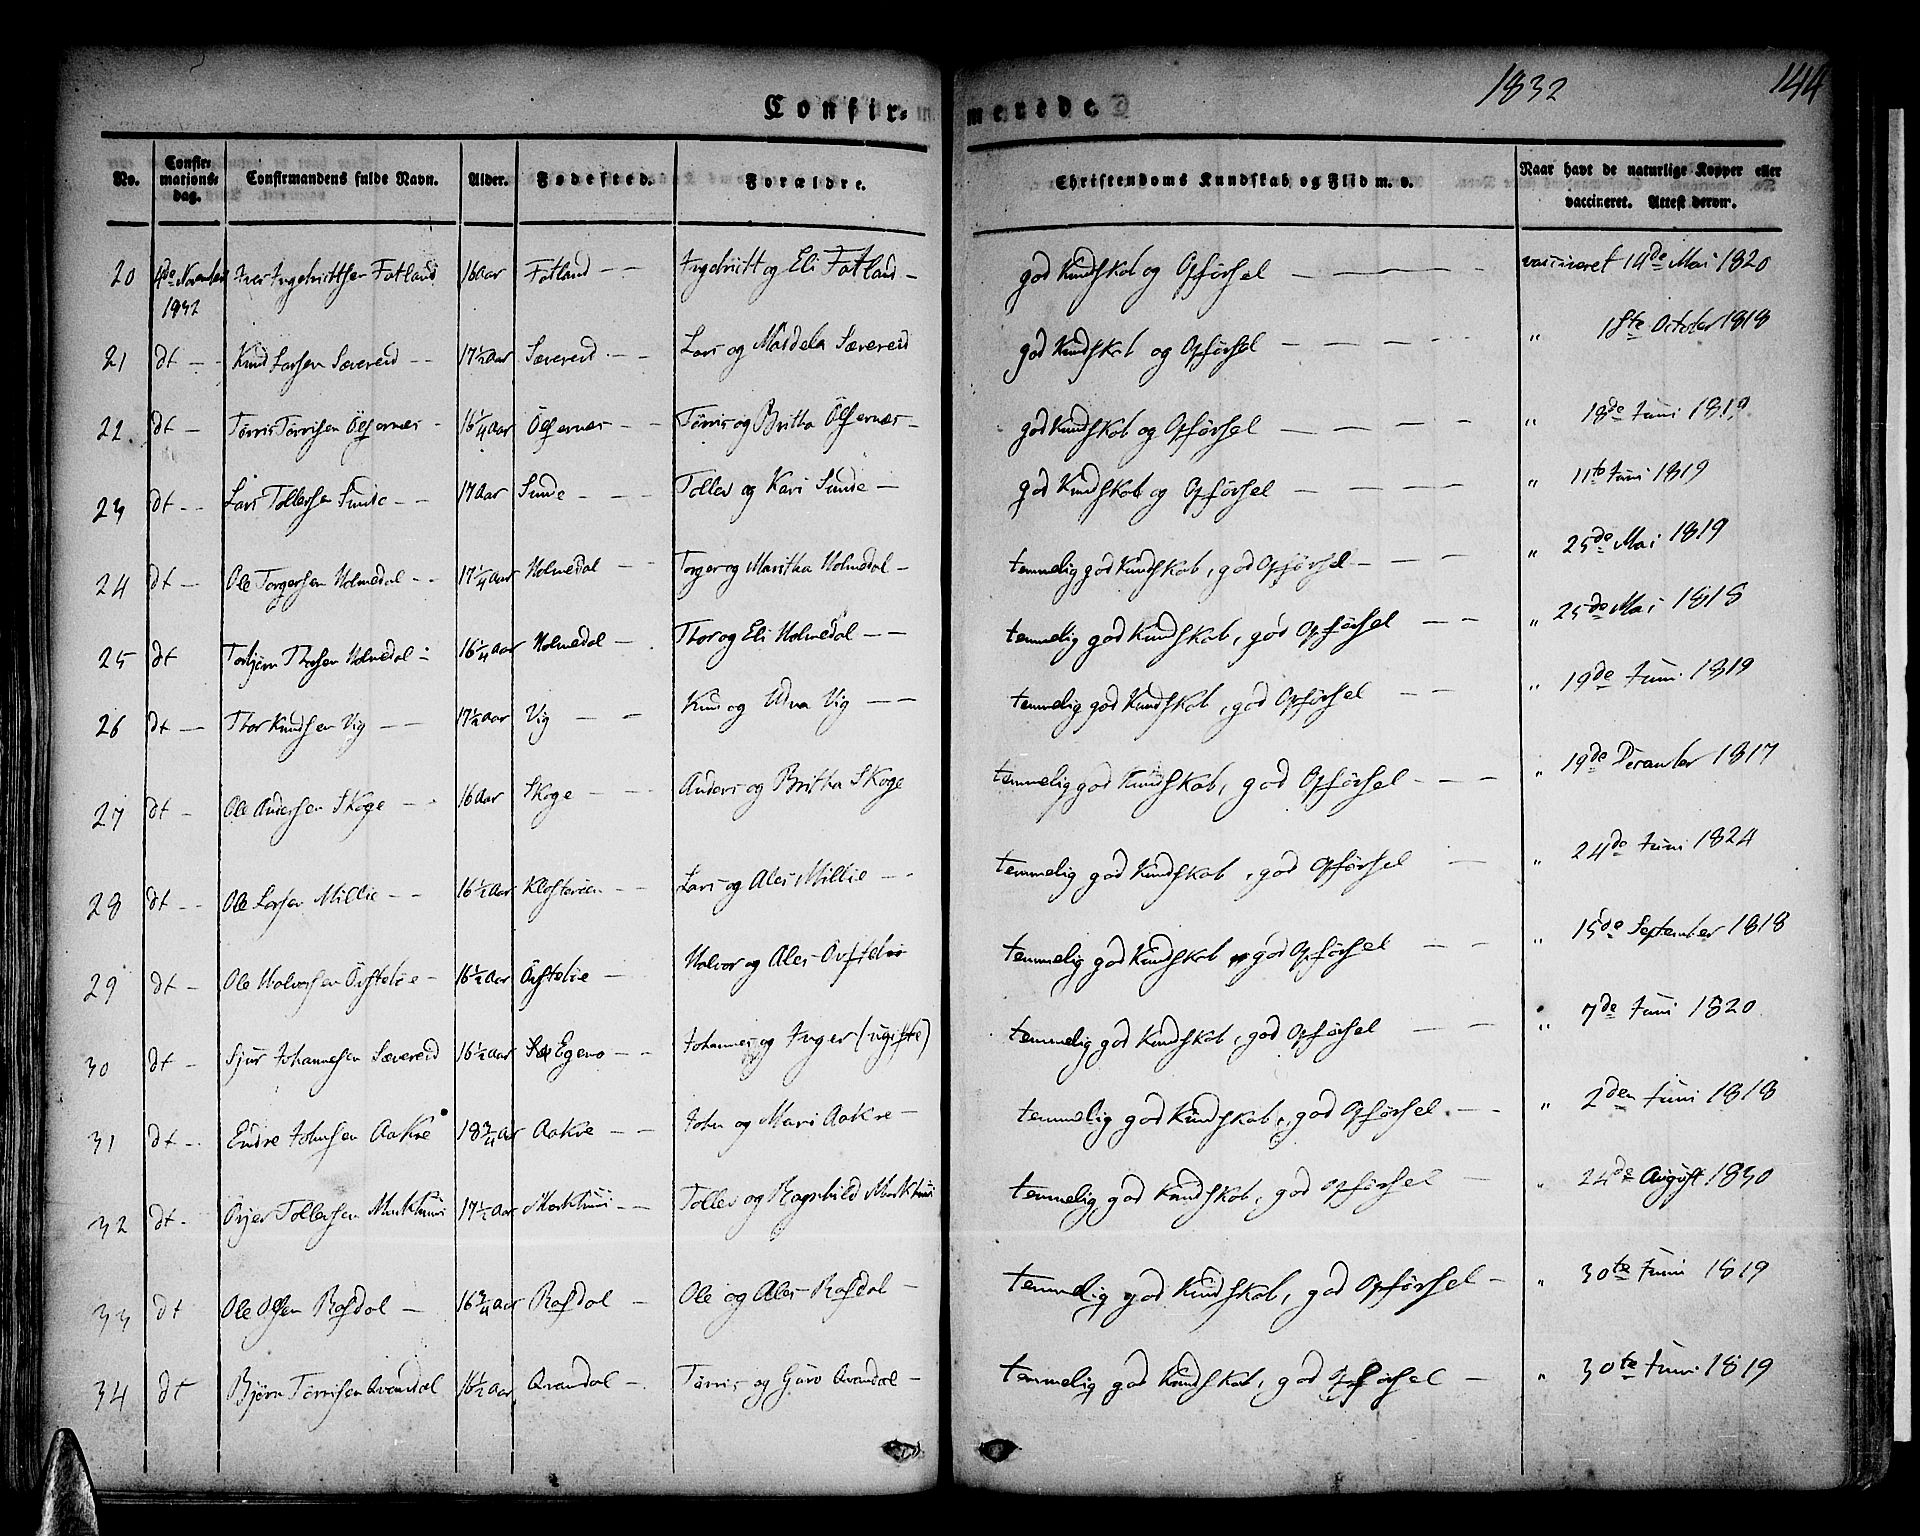 1832 144
Confir- merede.
No. Confirmationsdag. Confirmandens fulde Navn. Alder. Fødested. Forældre. Christendoms Kundskab og Flid m. v. Naar havt de naturlige Kopper eller vaccineret. Attest derom.
20 4de November 1832 Iver Ingebrittsen Fatland 16 Aar Fatland – – Ingebritt og Eli Fatland – god Kundskab og Opførsel – – – – vaccineret 14de Mai 1820
21 dt – – Knud Larsen Sævereid – – 17½ Aar Sævereid – – Lars og Sævereid god Kundskab og Opførsel – – – – „ 18te October 1818
22 dt – Tørris Tørrisen Ølfernæs – 16¼ Aar Ølfernæs – Tørris og Britha Ølfernæs – god Kundskab og Opførsel – – – – „ 18de Juni 1819
23 dt – – Lars Tollefsen Sunde – – 17 Aar Sunde – – – Tollev og Kari Sunde – god Kundskab og Opførsel – – – – „ 11te Juni 1819
24 dt – Ole Torgersen Holmedal – – 17¼ Aar Holmedal – – Torger og Maritha Holmedal – temmelig god Kundskab, god Opførsel – – – „ 25de Mai 1819
25 dt Torbjørn Thorsen Holmedal – 16¼ Aar Holmedal – Thor og Eli Holmedal – – temmelig god Kundskab, god Opførsel – – „ 25de Mai 1818
26 dt – Thor Knudsen Vig – – 17½ Aar Vig – – Knud og Vig – – temmelig god Kundskab, god Opførsel – – „ 19de Juni 1819
27 dt – Ole Andersen Skoge – – 16 Aar Skoge – – – Anders og Britha Skoge temmelig god Kundskab, god Opførsel – – – „ 19de December 1817
28 dt – – Ole Larsen Millie – – 16½ Aar – – Lars og Ales Millie – – temmelig god Kundskab, god Opførsel – „ 24de Juni 1824
29 dt – Ole Halvorsen Øvstebøe – 16½ Aar Øvstebøe – Halvor og Ales Øvstebøe temmelig god Kundskab god Opførsel – – „ 15de September 1818
30 dt – Sjur Johannesen Sævereid 16½ Aar – – Johannes og Inger (ugifte) temmelig god Kundskab, god Opførsel – – „ 7de Juni 1820
31 dt – Endre Johnsen Aakre 18¾ Aar Aakre – – John og Mari Aakre – temmelig god Kundskab, god Opførsel – – „ 2den Juni 1818
32 dt – Tollefsen Markhuus 17½ Aar Markhuus – – Tollev og Ragnhild Markhuus temmelig god Kundskab, god Opførsel – „ 24de August 1830
33 dt Ole Olsen Rafdal – 16¾ Aar Rafdal – Ole og Ales Rafdal – temmelig god Kundskab, god Opførsel – „ 30te Juni 1819
34 dt Bjørn Tørrisen Qvandal 16½ Aar Qvandal – Tørris og Guro Qvandal – temmelig god Kundskab, god Opførsel – „ 30te Juni 1819